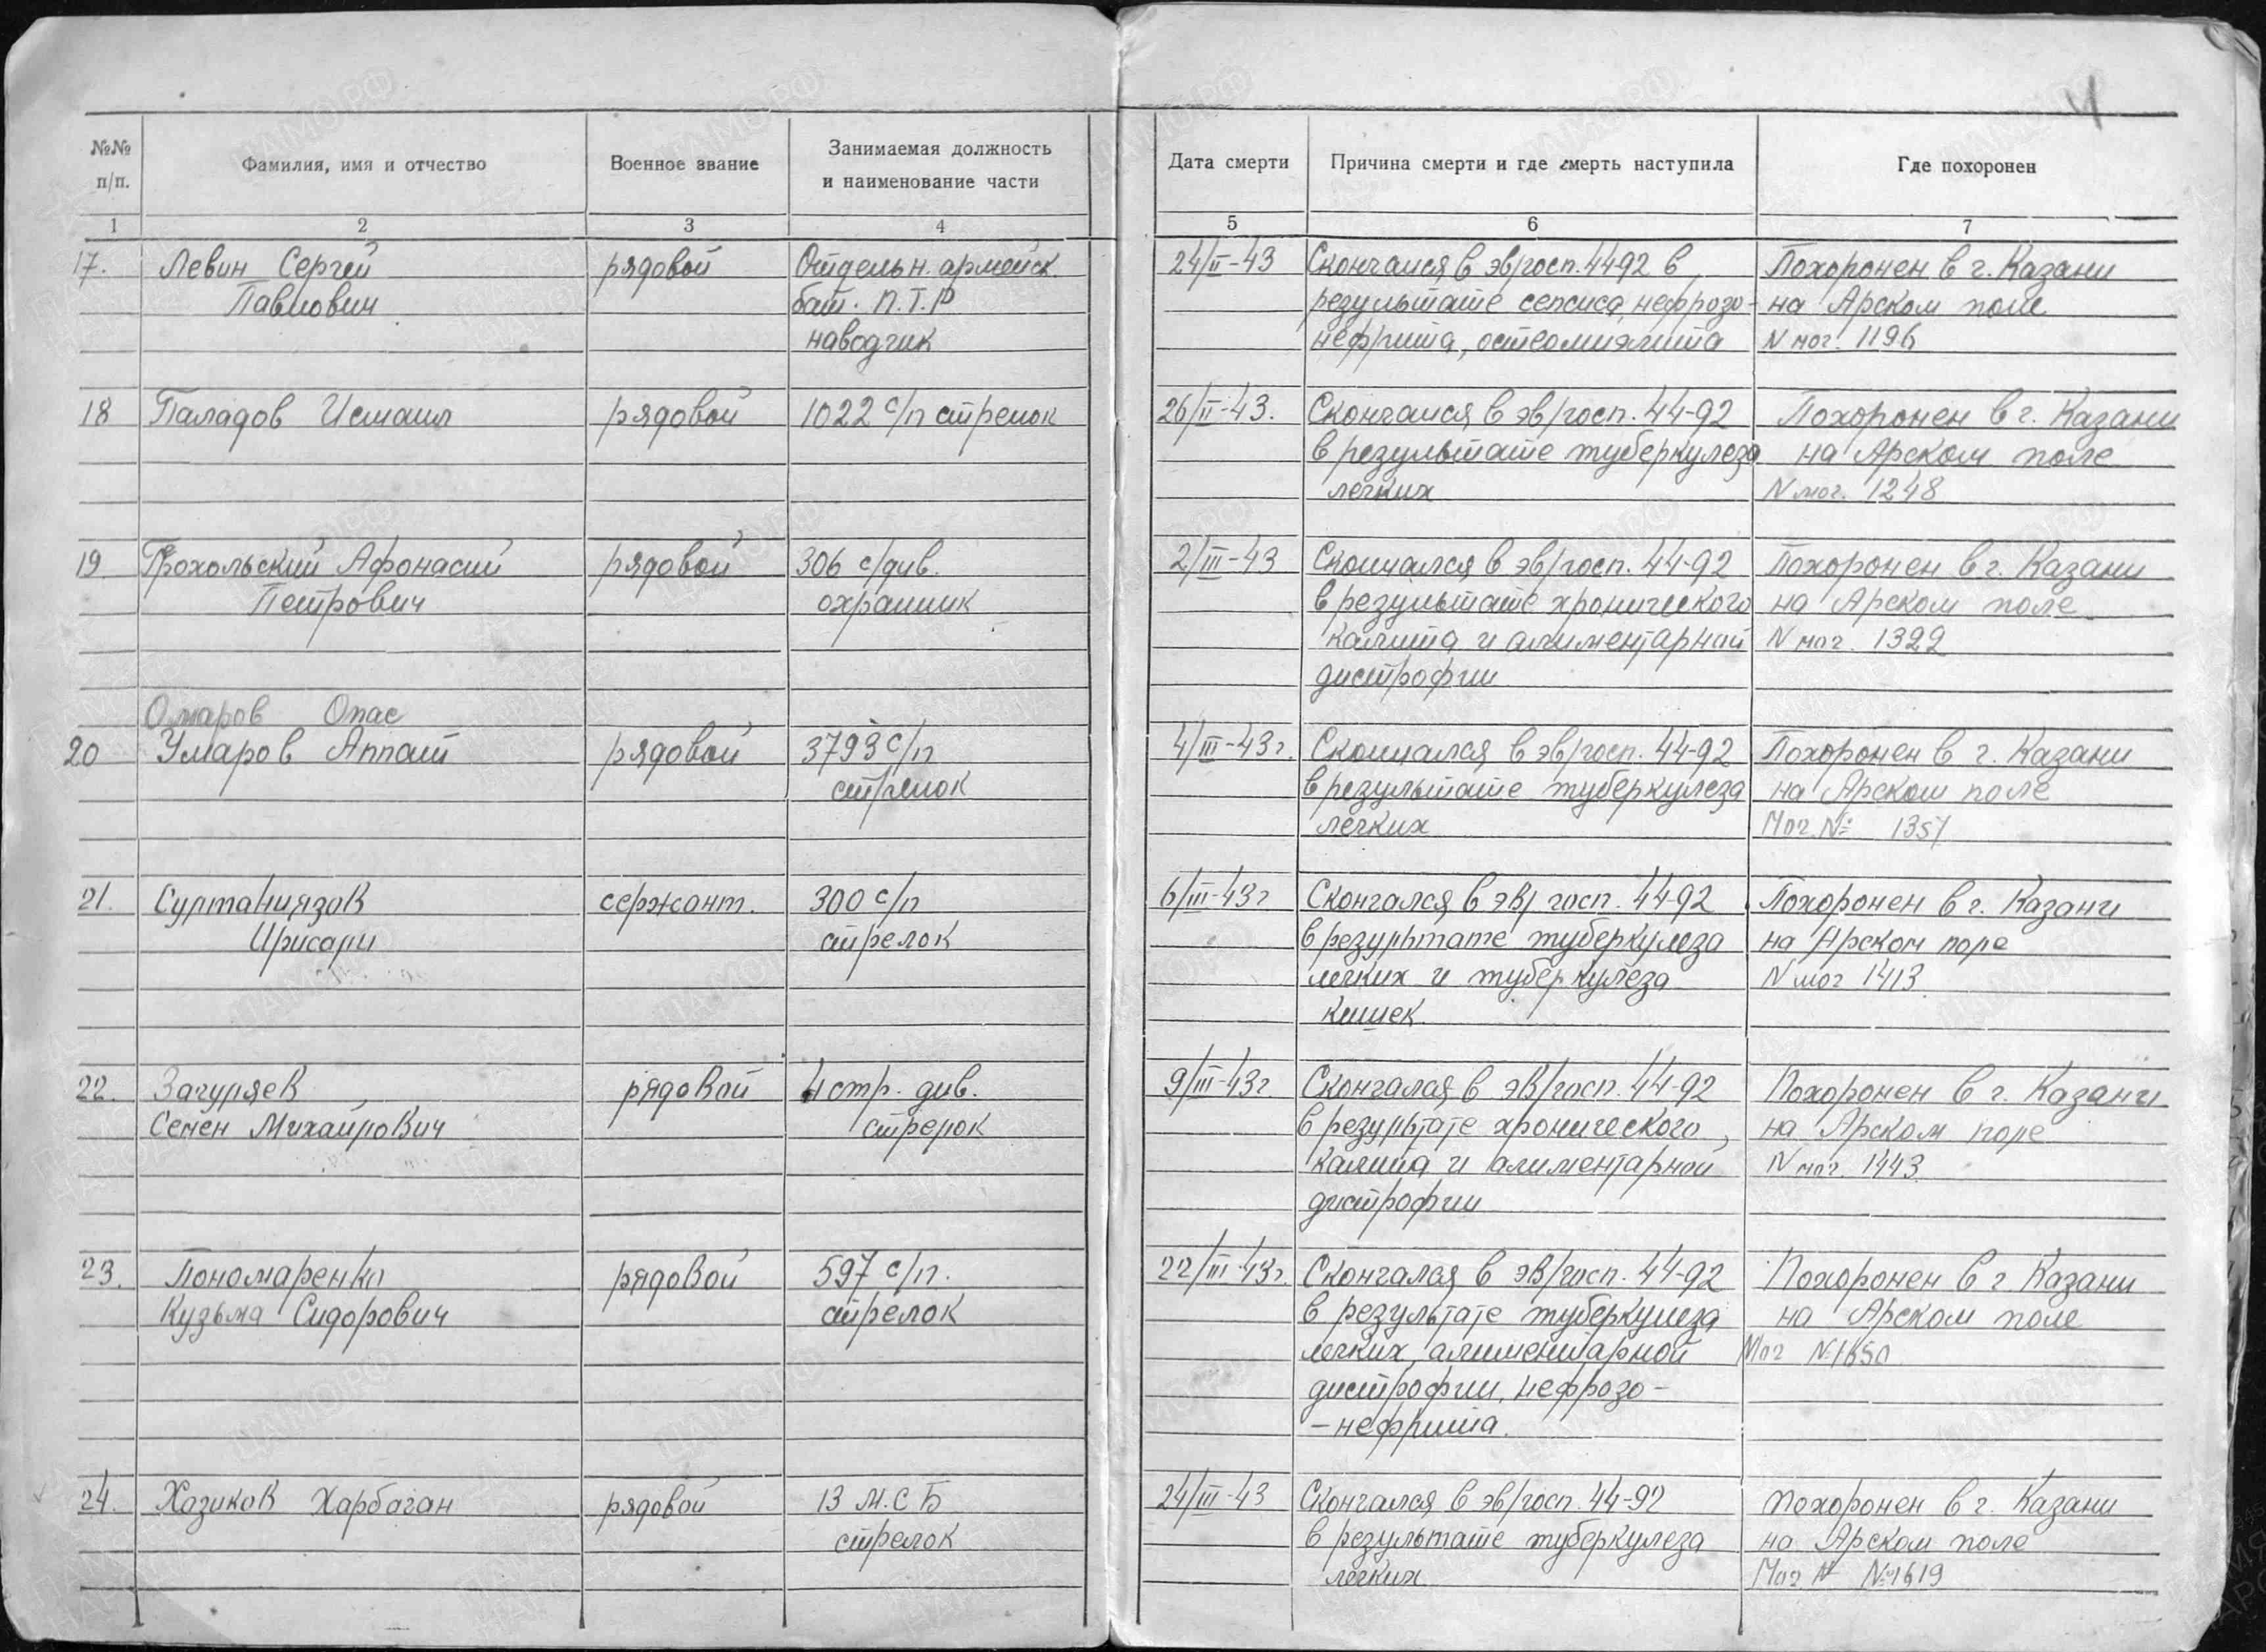 4
№№ п/п.
Фамилия, имя и отчество
Военное звание
Занимаемая должность
и наименование части
Дата смерти
Причина смерти и где смерть наступила
Где похоронен
1 2 3 4 5 6 7
17. Левин Сергей рядовой Отдельн. армейск. 24/II-43 Скончался в эв/госп. 4492 в Похоронен в г. Казани
Павлович бат. П.Т.Р результате сепсиса, нефрозо- на Арском поле
наводчик нефрита, остеомиэлита N мог. 1196
18 Паладов Исмаил рядовой 1022 с/п стрелок 26/II-43. Скончался в эв/госп. 44-92 Похоронен в г. Казани
в результате туберкулеза на Арском поле
легких N мог. 1248
19 Прохольский Афонасий рядовой 306 с/див. 2/III-43 Скончался в эв/госп. 44-92 Похоронен в г. Казани
Петрович охранник в результате хронического на Арском поле
калита и алиментарной N мог. 1322
дистрофии
Омаров Опас
20 Умаров Аппат рядовой 3793 с/п 4/III-43г. Скончался в эв/госп. 44-92 Похоронен в г. Казани
стрелок в результате туберкулеза на Арском поле
легких Мог. № 1357
21. Султаниязов сержант. 300 с/п 6/III-43г Скончался в эв/госп. 44-92 Похоронен в г. Казани
Ирисали стрелок в результате туберкулеза на Арском поле
легких и туберкулеза N мог 1413
кишек.
22. Загуляев рядовой 4 стр. див. 9/III-43г. Скончался в эв/госп. 44-92 Похоронен в г. Казани
Семен Михайлович стрелок в результате хронического на Арском поле
калита и алиментарной N мог. 1443
дистрофии
23. Пономаренко рядовой 597 с/п. 22/III-43г. Скончался в эв/госп. 44-92 Похоронен в г Казани
Кузьма Сидорович стрелок в результате туберкулеза на Арском поле
легких, алиментарной Мог №1650
дистрофии, нефрозо-
-нефрита.
24. Хазиков Харбаган рядовой 13 М.С Б 24/III-43 Скончался в эв/госп. 44-92 Похоронен в г. Казани
стрелок в результате туберкулеза на Арском поле
легких Мог N №1619